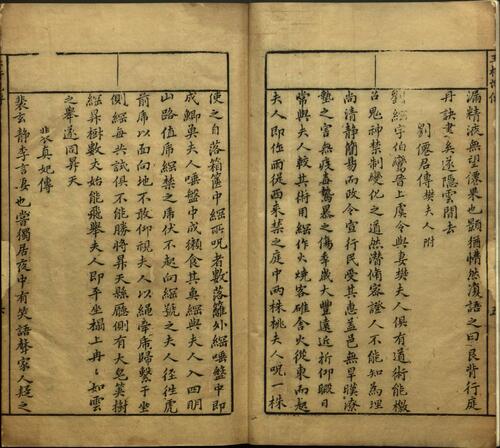 漏精液無望漂果也顗猶憒然復語之曰艮背行庭
丹訣畫矣遂隱雲閒去
劉僊君傳樊夫人附
劉綱字伯鸞晉上虞令與妻樊夫人俱有道術能檄
召鬼神禁制變化之道然潛脩密證人不能知為理
尚清静簡易而政令宣行民受其惠蓋邑無旱暵漂
墊之害無疫毒鷙暴之傷季歲大豐遠近祈仰暇日
常與夫人較其術用綱作火燒客碓舍火從東而起
夫人即作雨從西来禁之庭中兩株桃夫人呪一株
使之自落箱篋中綱所呪者數落籬外綱唾盤中即
成鯽魚夫人唾盤中成獺食其魚綱與夫人入四明
山路值虎綱禁之虎伏不起向綱號之夫人徑往虎
前虎以面向地不敢仰視夫人以繩牽虎歸繫于坐
側綱每共試俱不能勝將昇天縣廳側有大皂莢樹
綱昇樹數丈始能飛舉夫人即平坐榻上冉〻如雲
之舉遂同昇天
裴真妃傳
裴玄静李言妻也嘗獨居夜中有笑語聲家人疑之